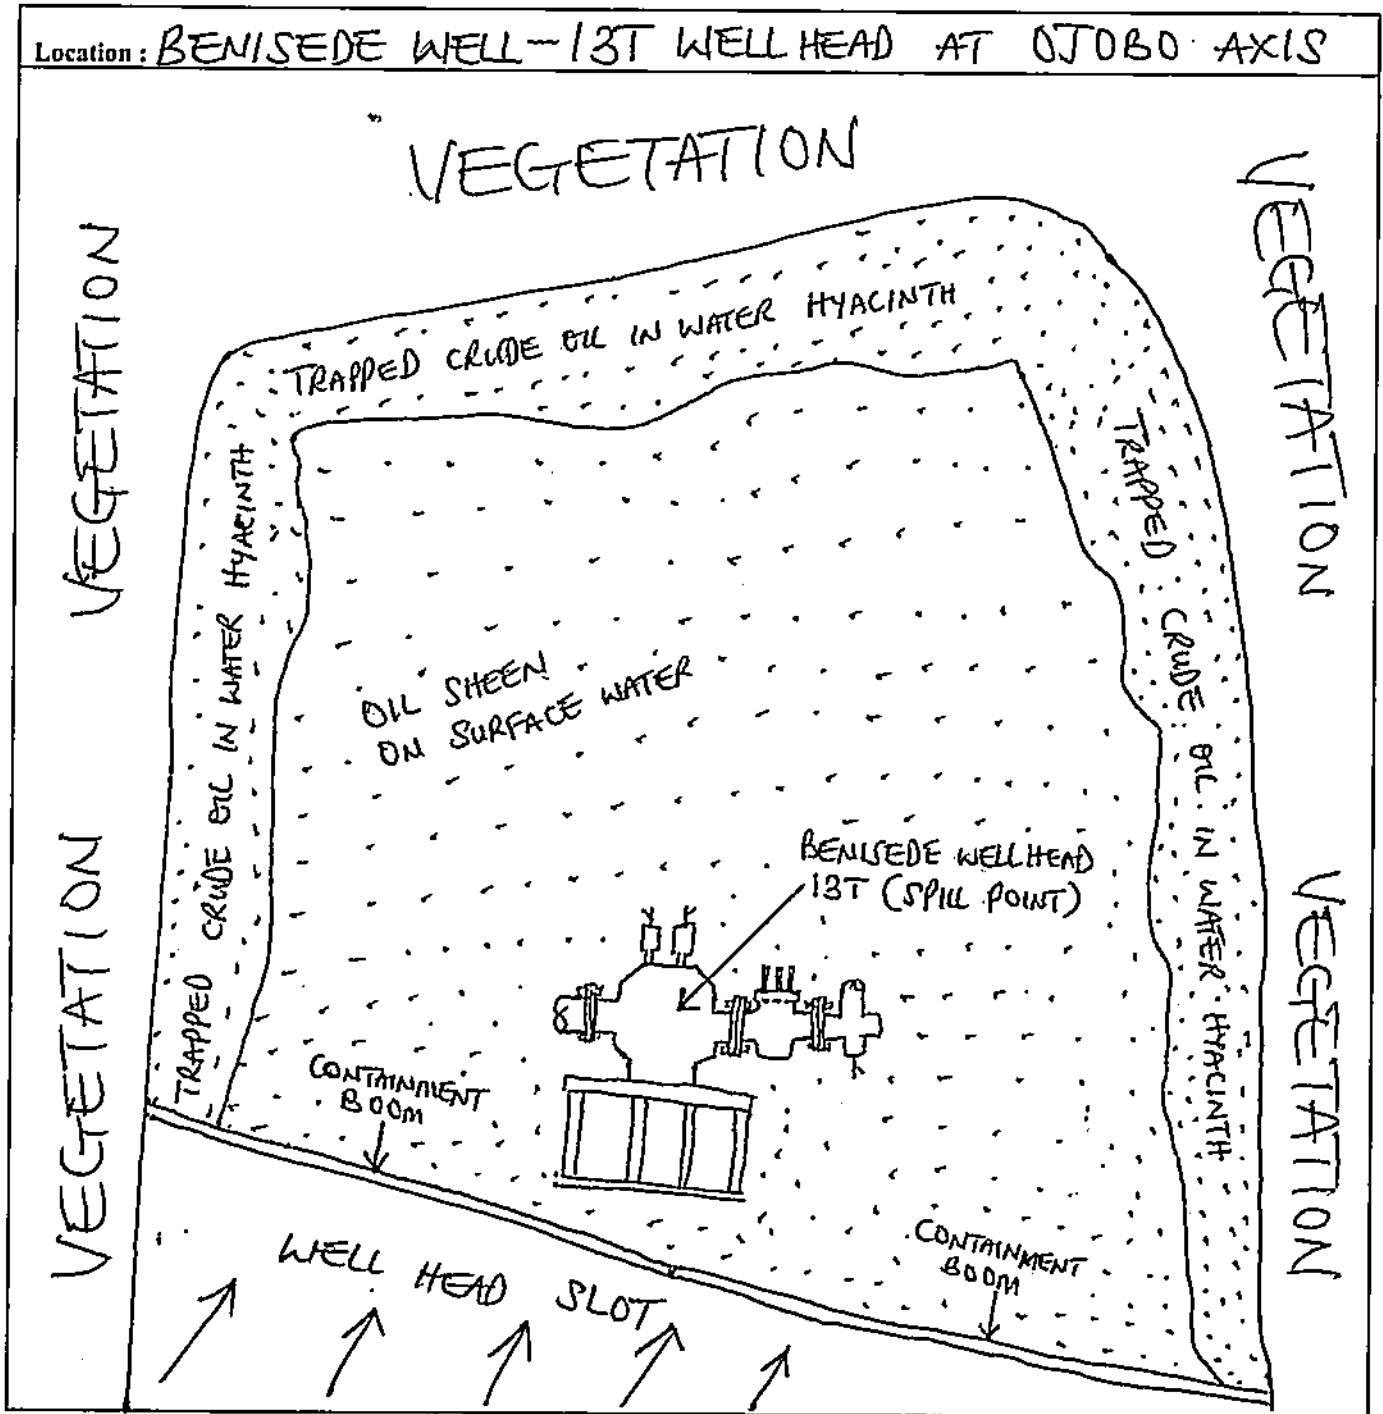 Location : BENISEDE WELL-13T WELLHEAD AT OJOBO AXIS
VEGETATION
VEGETATION
VEGETATION
TRAPPED CRUDE OIL IN WATER HYACINTH
TRAPPED CRUDE OIL IN WATER HYACINTH
TRAPPED CRUDE OIL IN WATER HYACINTH
OIL SHEEN
ON SURFACE WATER
BENISEDE WELLHEAD
13T (SPILL POINT)
VEGETATION
VEGETATION
CONTAINMENT
BOOM
CONTAINMENT
BOOM
WELL HEAD SLOT